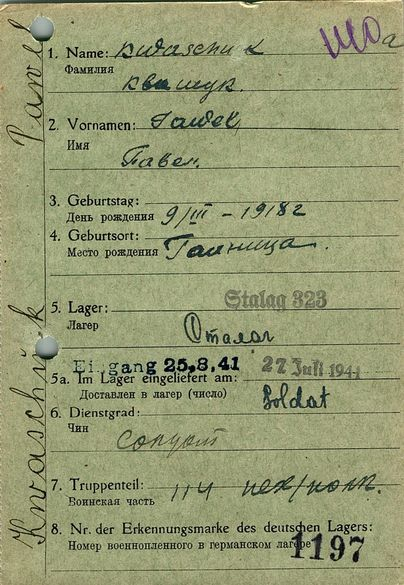 Kwaschuk Pawel
1. Name: Kwaschuk
Фамилия
Квашук.
2. Vornamen: Pawel,
Имя
Павел.
3. Geburtstag:
День рождения 9/III - 1918 г
4. Geburtsort:
Место рождения
5. Lager: Stalag 323
Лагерь
Сталаг
Eingang 25.8.41 27 Juli 1941
5a. Im Lager eingeliefert am:
Доставлен в лагерь (число)
Soldat
6. Dienstgrad:
Чин
солдат
7. Truppenteil:
Воинская часть 114 пех/полк.
8. Nr. der Erkennungsmarke des deutschen Lagers:
Номер военнопленного в германском лагере 1197